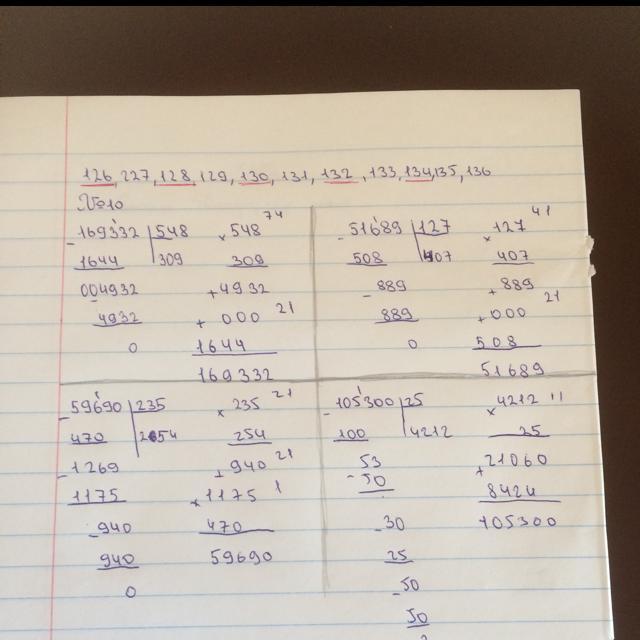 126, 227, 128, 129, 130, 131, 132, 133, 134, 135, 136
№10
-169332 | 548
1644 | 309
004932
- 4932
0
× 548 74
309
+ 4932
+ 000 21
1644
169332
- 51689 | 127
508 | 407
- 889
889
0
× 127 41
407
+ 889
+ 000 21
508
51689
- 59690 | 235
470 | 254
- 1269
1175
- 940
940
0
× 235 21
254
+ 940 21
+ 1175 1
470
59690
- 105300 | 25
100 | 4212
53
- 50
- 30
25
- 50
50
× 4212 11
25
+ 21060
8424
105300